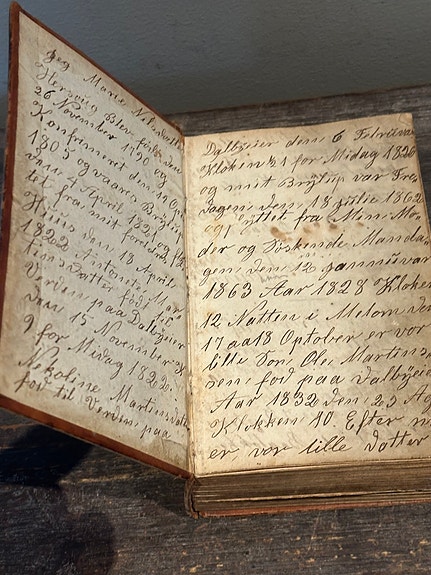 Jeg Marie Nilsdatter
Hersøug Blev født den
26 November 1790 og
Konfirmeret den 14 Opt
1805 og vaares Brÿlup
var 4 April 1822 og flÿt
tet fra mit foreldre
Huus den 18 April
1822 Antonete Mar
tinsdatter født til
Verden paa Dalbÿeier
den 15 November Kl
9 for Midag 1822.
Nekoline Martinsdatt
fød til Verden paa
Dalbÿeier den 6 Februar
Kloken ½ 1 for Midag 1826
og mit Brÿlup var Fre
dagen den 18 julie 1862
og flÿttet fra Min Mo
der og Søskende Manda
gen den 12 jannuvar
1863 Aar 1828 Kloken
12 Natten i Melom den
17 aa 18 Optober er vor
lille Søn Ole Martins
sen fød paa Dalbÿeie
Aar 1832 den 23 Ag
Klokken 10 Efter m
er vor lille dotter